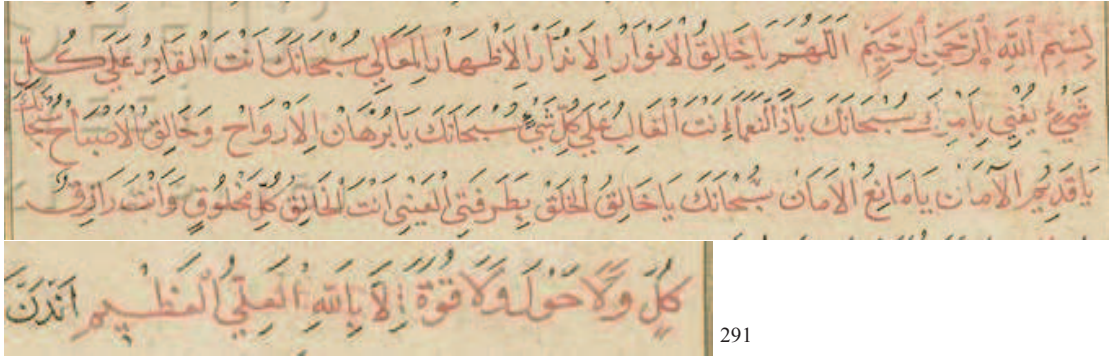 بِسْمِ اللّٰهِ الرَّحْمٰنِ الرَّحِيمِ اللّٰهُمَّ يَا خَالِقُ الْاَنْوَارِ الْاَظْهَارِ الْمَعَالِي سُبْحَانَكَ اَنْتَ الْقَادِرُ عَلَي كُلِّ
شَيْءٍ يُغْنِي سُبْحَانَكَ اَنْتَ الْغَالِبُ عَلَي كُلِّ شَيْءٍ سُبْحَانَكَ يَا بُرْهَانَ الْاَرْوَاحِ وَخَالِقُ الْاَصْبَاحِ سُبْحَانَكَ
يَا قَدِيمُ الْآمَانِ يَا مَانِعُ الْاَمَانِ سُبْحَانَكَ يَا خَالِقُ الْخَلْقِ بِطَرْفَتِي الْعَيْنِي اَنْتَ الْخَالِقُ كُلِّ مَخْلُوقٍ وَاَنْتَ رَازِقُ
كُلِّ وَلَا حَوْلَ وَلَا قُوَّةَ اِلَّا بِاللّٰهِ الْعَلِيِّ الْعَظِيمِ
291